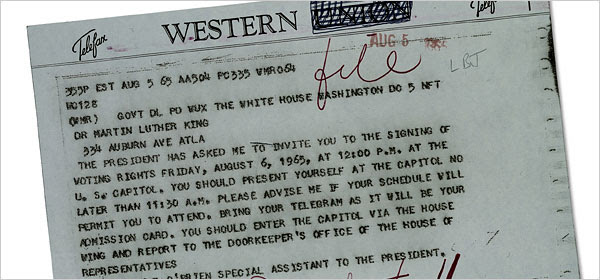 Telefax WESTERN Telefax
AUG 5 1965
file
LBJ
355P EST AUG 5 65 AA504 PC335 VMR064
WO128
(WMR) GOVT DL PD WUX THE WHITE HOUSE WASHINGTON DC 5 NFT
DR MARTIN LUTHER KING
334 AUBURN AVE ATLA
THE PRESIDENT HAS ASKED ME TO INVITE YOU TO THE SIGNING OF
VOTING RIGHTS FRIDAY, AUGUST 6, 1965, AT 12:00 P.M. AT THE
U. S. CAPITOL. YOU SHOULD PRESENT YOURSELF AT THE CAPITOL NO
LATER THAN 11:30 A.M. PLEASE ADVISE ME IF YOUR SCHEDULE WILL
PERMIT YOU TO ATTEND. BRING YOUR TELEGRAM AS IT WILL BE YOUR
ADMISSION CARD. YOU SHOULD ENTER THE CAPITOL VIA THE HOUSE
WING AND REPORT TO THE DOORKEEPER'S OFFICE OF THE HOUSE OF
REPRESENTATIVES
O'BRIEN SPECIAL ASSISTANT TO THE PRESIDENT.